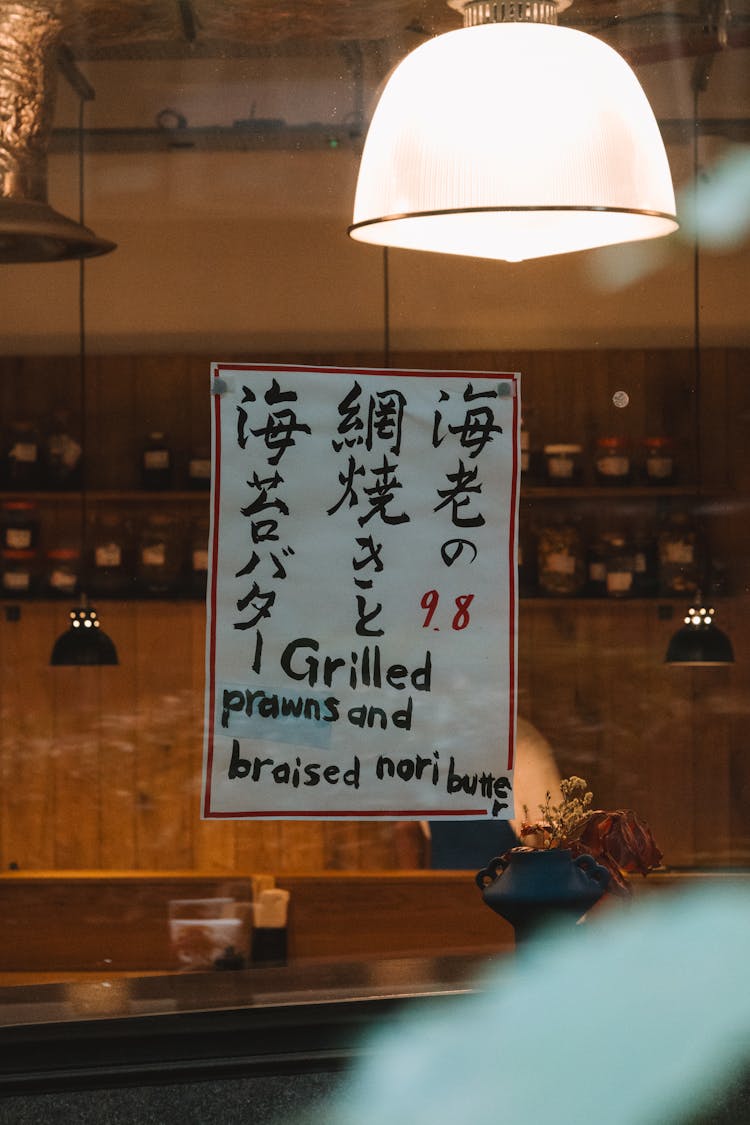 海老の
網焼きと
海苔バター
9.8
Grilled
prawns and
braised nori butter